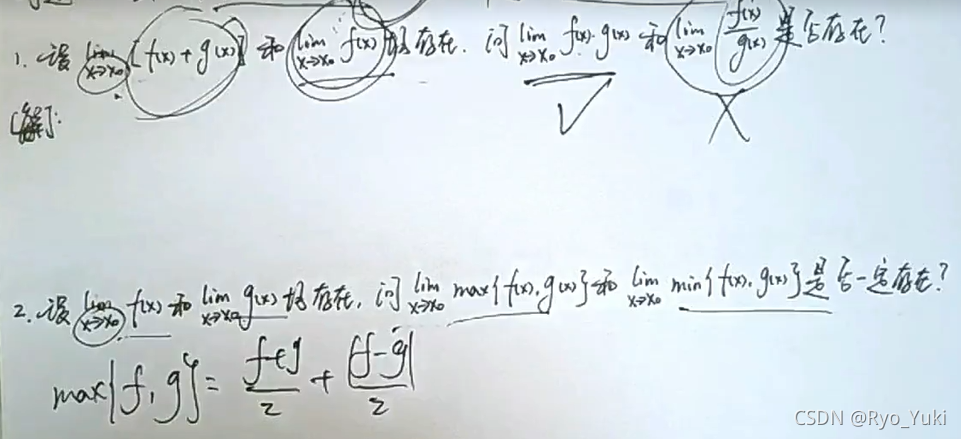 1. 设 lim x→x₀ [f(x)+g(x)] 和 lim x→x₀ f(x) 均存在. 问 lim x→x₀ f(x)·g(x) 和 lim x→x₀ f(x)/g(x) 是否存在?
[解]:
2. 设 lim x→x₀ f(x) 和 lim x→x₀ g(x) 均存在, 问 lim x→x₀ max{f(x), g(x)} 和 lim x→x₀ min{f(x), g(x)} 是否一定存在?
max{f, g} = f+g/2 + |f-g|/2
CSDN @Ryo_Yuki